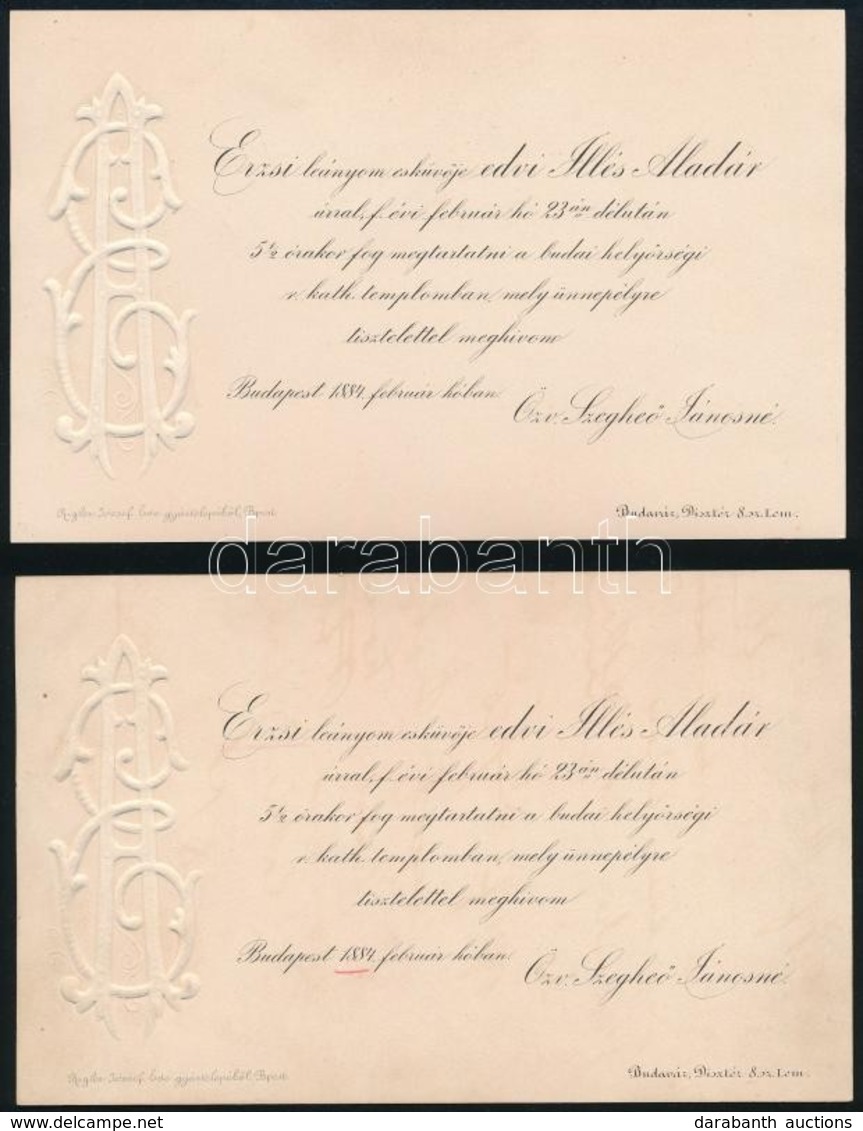 Erzsi leányom esküvője edvi Illés Aladár
úrral, f. évi február hó 23án délután
5 1/2 órakor fog megtartatni a budai helyőrségi
r. kath. templomban, mely ünnepélyre
tisztelettel meghivom
Budapest 1884. február hóban.
Özv. Szegheő Jánosné.
József gyártelepéből, Bpest.
Budavár, Disztér 8. sz. I. em.
darabanth
Erzsi leányom esküvője edvi Illés Aladár
úrral, f. évi február hó 23án délután
5 1/2 órakor fog megtartatni a budai helyőrségi
r. kath. templomban, mely ünnepélyre
tisztelettel meghivom
Budapest 1884. február hóban.
Özv. Szegheő Jánosné.
József gyártelepéből, Bpest.
Budavár, Disztér 8. sz. I. em.
www.darabanth.com
darabanth auctions